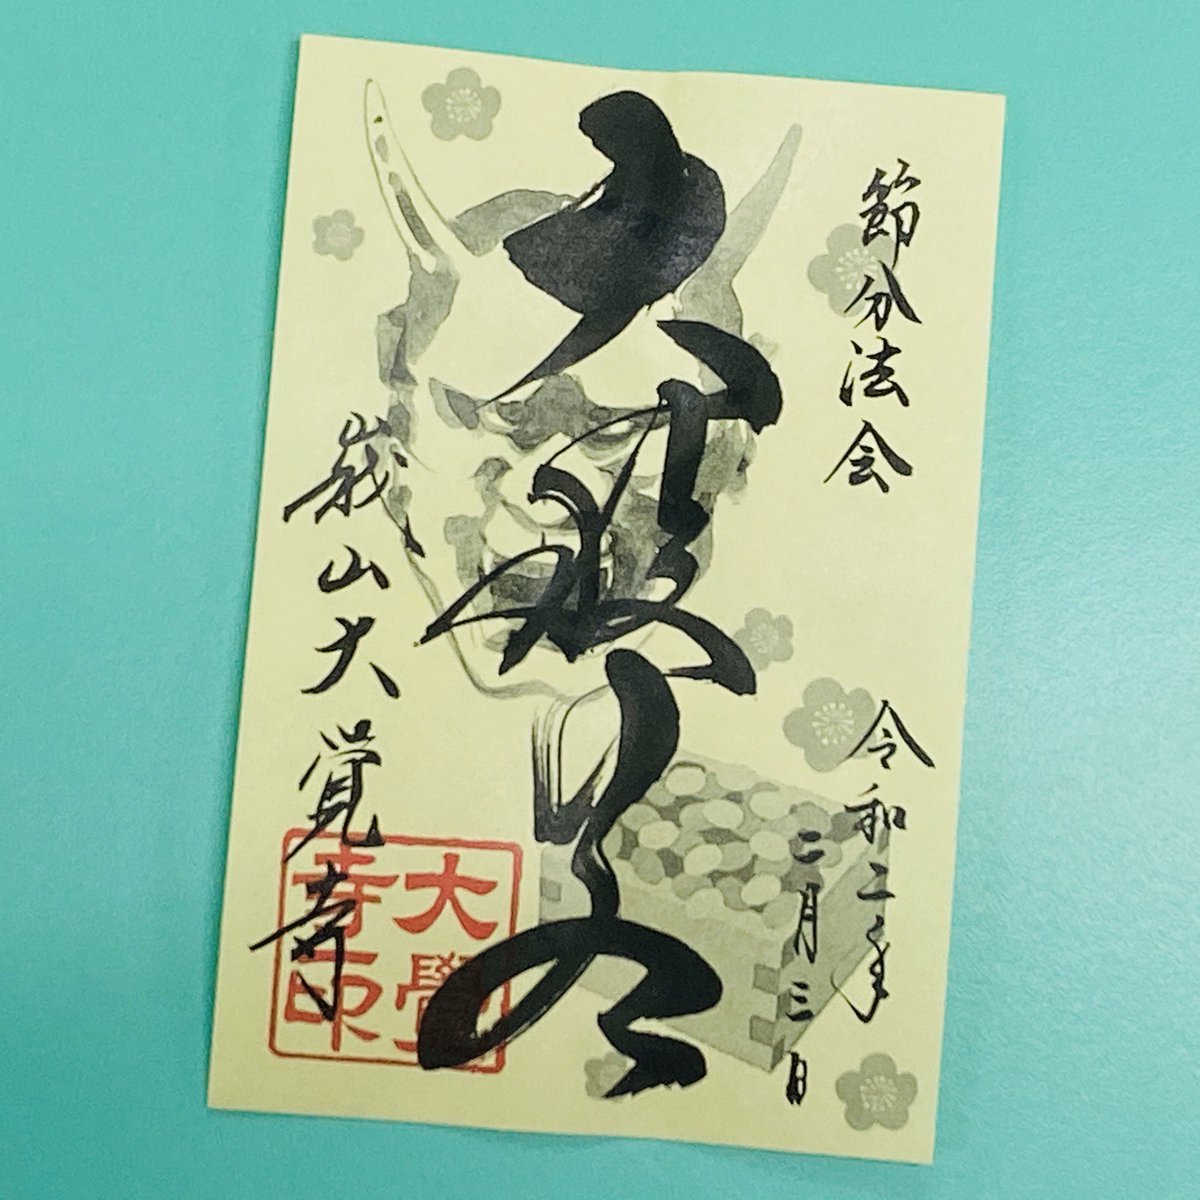 節分法会
令和二年
二月三日
峩山大覚寺
大覺
寺印